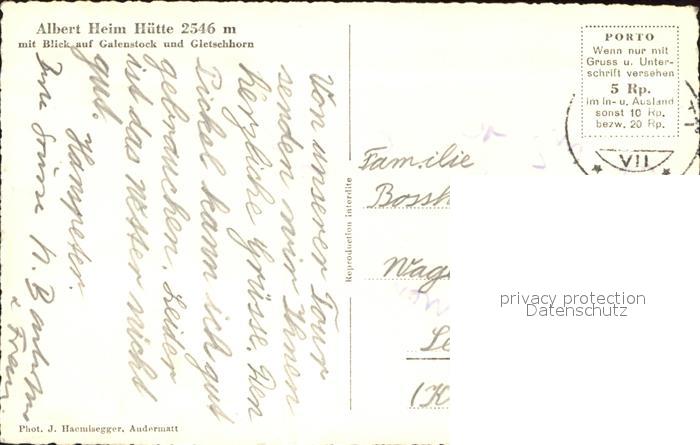 Albert Heim Hütte 2546 m
mit Blick auf Galenstock und Gletschhorn
Von unserer Tour
senden wir Ihnen
herzliche Grüsse. Den
Pickel kann ich gut
gebrauchen. Leider
ist das Wetter nicht
gut.
Hanspeter.
Phot. J. Haemisegger, Andermatt
Reproduction interdite
PORTO
Wenn nur mit
Gruss u. Unter-
schrift versehen
5 Rp.
im In- u. Ausland
sonst 10 Rp.
bezw. 20 Rp.
VII
Familie
Bossh
Wage
Le
(K
privacy protection
Datenschutz